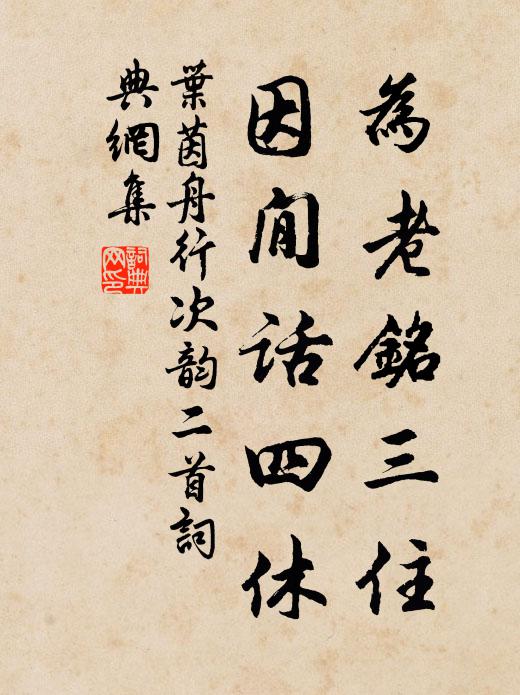 為老銘三住
因閒話四休
葉茵舟行次韵二首詞
典網集
詞典
网印